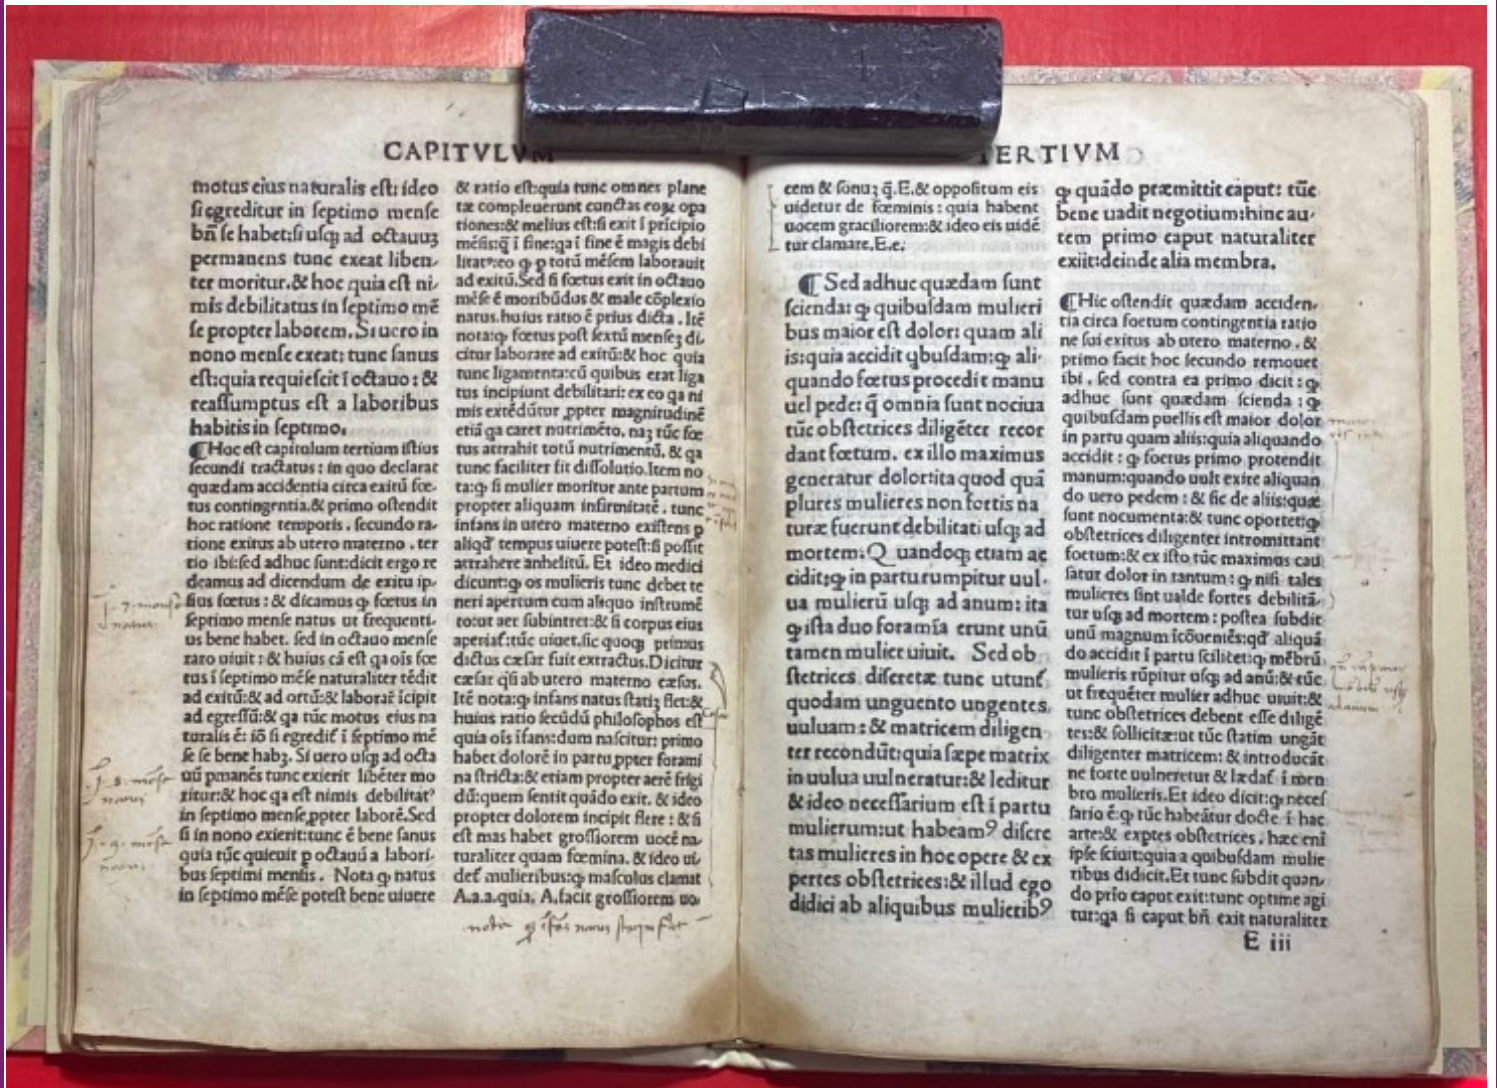 CAPITVLVM
motus eius naturalis est: ideo
si egreditur in septimo mense
bñ se habet: si usq; ad octauuʒ
permanens tunc exeat liben-
ter moritur. & hoc quia est ni-
mis debilitatus in septimo mē
se propter laborem. Si uero in
nono mense exeat: tunc sanus
est: quia requiescit ī octauo: &
reassumptus est a laboribus
habitis in septimo.
¶ Hoc est capitulum tertium istius
secundi tractatus: in quo declarat
quædam accidentia circa exitū fœ-
tus contingentia. & primo ostendit
hoc ratione temporis. secundo ra-
tione exitus ab utero materno. ter
tio ibi: sed adhuc sunt: dicit ergo re
deamus ad dicendum de exitu ip-
sius fœtus: & dicamus ꝙ fœtus in
septimo mense natus ut frequenti-
us bene habet. sed in octauo mense
raro uiuit: & huius cā est qa oīs fœ
tus ī septimo mēse naturaliter tēdit
ad exitū: & ad ortū: & laborat̄ īcipit
ad egressū: & qa tūc motus eius na
turalis ē: iō si egredit̄ ī septimo mē
se se bene habʒ. Si uero usq; ad octa
uū ꝑmanēs tunc exierit libēter mo
ritur: & hoc qa est nimis debilitatꝰ
in septimo mense ꝓpter laborē. Sed
si in nono exierit: tunc ē bene sanus
quia tūc quieuit ꝑ octauū a labori-
bus septimi mensis. Nota ꝙ natus
in septimo mēse potest bene uiuere
& ratio est: quia tunc omnes plane
tæ compleuerunt cunctas eoꝝ opa
tiones: & melius est: si exit ī prīcipio
mēsis: q̄ ī fine: qa ī fine ē magis debi
litatꝰ: eo ꝙ ꝑ totū mēsem laborauit
ad exitū. Sed si fœtus exit in octauo
mēse ē moribūdus & male cōplexio
natus. huius ratio ē prius dicta. Itē
nota: ꝙ fœtus post sextū menseʒ di
citur laborare ad exitū: & hoc quia
tunc ligamenta: cū quibus erat liga
tus incipiunt debilitari: ex eo qa ni
mis extēdūtur ꝓpter magnitudinē
etiā qa caret nutrimēto. naʒ tūc fœ
tus attrahit totū nutrimentū. & qa
tunc faciliter fit dissolutio. Item no
ta: ꝙ si mulier moritur ante partum
propter aliquam infirmitatē. tunc
infans in utero materno existens ꝑ
aliqđ tempus uiuere potest: si possit
attrahere anhelitū. Et ideo medici
dicunt: ꝙ os mulieris tunc debet te
neri apertum cum aliquo instrumē
to: ut aer subintret: & si corpus eius
aperiat̄: tūc uiuet. sic quoq; primus
dictus cæsar fuit extractus. Dicitur
cæsar q̄si ab utero materno cæsus.
Itē nota: ꝙ infans natus statiʒ flet: &
huius ratio secūdū philosophos est
quia oīs īfans: dum nascitur: primo
habet dolorē in partu ꝓpter forami
na stricta: & etiam propter aerē frigi
dū: quem sentit quādo exit. & ideo
propter dolorem incipit flere: & si
est mas habet grossiorem uocē na-
turaliter quam fœmina. & ideo ui-
det̄ mulieribus: ꝙ masculus clamat
A.a.a. quia. A. facit grossiorem uo-
TERTIVM
cem & sonuʒ q̄. E. & oppositum eis
uidetur de fœminis: quia habent
uocem graciliorem: & ideo eis uidē
tur clamare. E.e.
¶ Sed adhuc quædam sunt
scienda: ꝙ quibusdam mulieri
bus maior est dolor: quam ali
is: quia accidit qbusdam: ꝙ ali-
quando fœtus procedit manu
uel pede: q̄ omnia sunt nociua
tūc obstetrices diligēter recor
dant fœtum. ex illo maximus
generatur dolor: ita quod quā
plures mulieres non fortis na
turæ fuerunt debilitati usq; ad
mortem. Quandoq; etiam ac
cidit: ꝙ in partu rumpitur uul-
ua mulierū usq; ad anum: ita
ꝙ ista duo foramīa erunt unū
tamen mulier uiuit. Sed ob
stetrices discretæ tunc utunt̄
quodam unguento ungentes
uuluam: & matricem diligen-
ter recondūt: quia sæpe matrix
in uulua uulneratur: & leditur
& ideo necessarium est ī partu
mulierum: ut habeamꝰ discre
tas mulieres in hoc opere & ex
pertes obstetrices: & illud ego
didici ab aliquibus mulieribꝰ
ꝙ quādo præmittit caput: tūc
bene uadit negotium: hinc au-
tem primo caput naturaliter
exiit: deinde alia membra.
¶ Hic ostendit quædam acciden-
tia circa foetum contingentia ratio
ne sui exitus ab utero materno. &
primo facit hoc secundo remouet
ibi. sed contra ea primo dicit: ꝙ
adhuc sunt quædam scienda: ꝙ
quibusdam puellis est maior dolor
in partu quam aliis: quia aliquando
accidit: ꝙ foetus primo protendit
manum: quando uult exire aliquan
do uero pedem: & sic de aliis: quæ
sunt nocumenta: & tunc oportet: ꝙ
obstetrices diligenter intromittant
foetum: & ex isto tūc maximus cau
satur dolor in tantum: ꝙ nisi tales
mulieres sint ualde fortes debilitā-
tur usq; ad mortem: postea subdit
unū magnum īcōueniēs: qđ aliquā
do accidit ī partu scilicet: ꝙ mēbrū
mulieris rūpitur usq; ad anū: & tūc
ut frequēter mulier adhuc uiuit: &
tunc obstetrices debent esse diligē
tes: & sollicitæ: ut tūc statim ungāt
diligenter matricem: & introducāt
ne forte uulneretur & lædat̄ ī mem
bro mulieris. Et ideo dicit: ꝙ neces
sario ē: ꝙ tūc habeātur doctæ ī hac
arte: & exptes obstetrices. hæc enī
ipse sciuit: quia a quibusdam mulie
ribus didicit. Et tunc subdit quan-
do prīo caput exit: tunc optime agi
tur: qa si caput bñ exit naturaliter
E iii